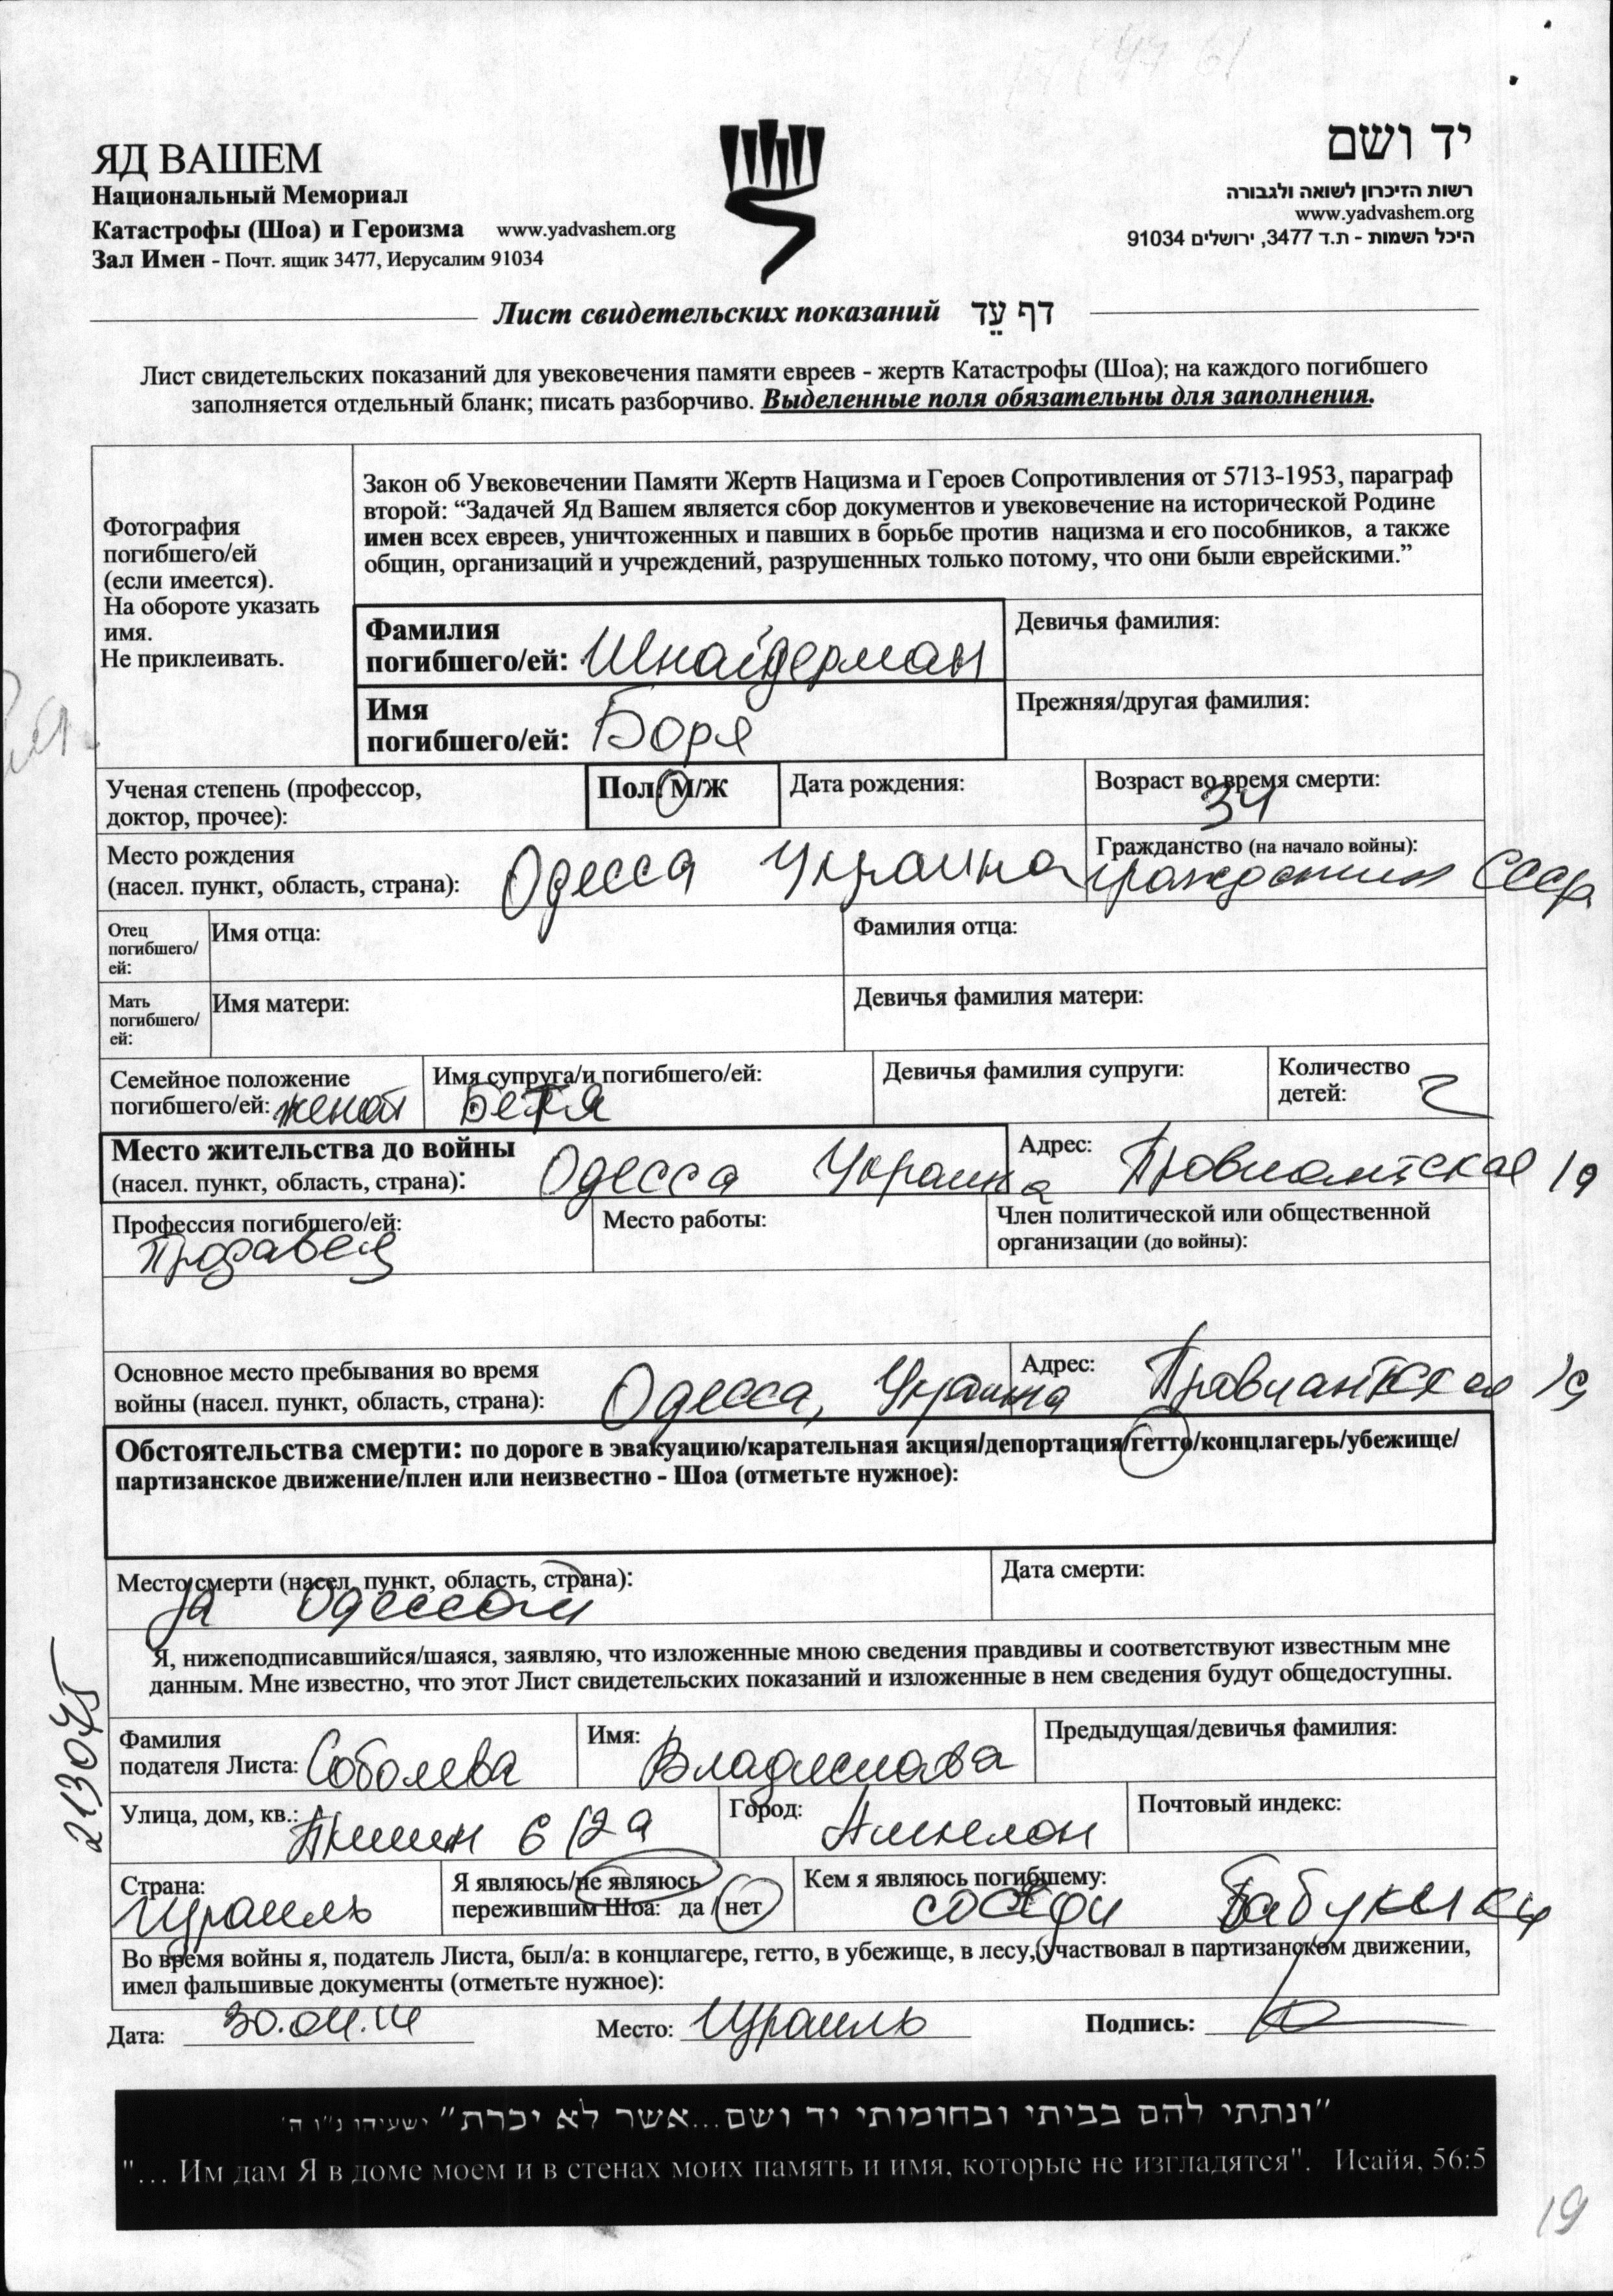 ЯД ВАШЕМ
Национальный Мемориал
Катастрофы (Шоа) и Героизма www.yadvashem.org
Зал Имен - Почт. ящик 3477, Иерусалим 91034
יד ושם
רשות הזיכרון לשואה ולגבורה
www.yadvashem.org
היכל השמות - ת.ד 3477, ירושלים 91034
Лист свидетельских показаний דף עֵד
Лист свидетельских показаний для увековечения памяти евреев - жертв Катастрофы (Шоа); на каждого погибшего
заполняется отдельный бланк; писать разборчиво. Выделенные поля обязательны для заполнения.
Фотография
погибшего/ей
(если имеется).
На обороте указать
имя.
Не приклеивать.
Закон об Увековечении Памяти Жертв Нацизма и Героев Сопротивления от 5713-1953, параграф
второй: “Задачей Яд Вашем является сбор документов и увековечение на исторической Родине
имен всех евреев, уничтоженных и павших в борьбе против нацизма и его пособников, а также
общин, организаций и учреждений, разрушенных только потому, что они были еврейскими.”
Фамилия
погибшего/ей: Шнайдерман
Девичья фамилия:
Имя
погибшего/ей: Боря
Прежняя/другая фамилия:
Ученая степень (профессор,
доктор, прочее):
Пол: М/Ж
Дата рождения:
Возраст во время смерти:
34
Место рождения
(насел. пункт, область, страна): Одесса Украина
Гражданство (на начало войны):
гражданин СССР
Отец
погибшего/
ей:
Имя отца:
Фамилия отца:
Мать
погибшего/
ей:
Имя матери:
Девичья фамилия матери:
Семейное положение
погибшего/ей: женат
Имя супруга/и погибшего/ей:
Бетя
Девичья фамилия супруги:
Количество
детей: 2
Место жительства до войны
(насел. пункт, область, страна): Одесса Украина
Адрес: Провиантская 19
Профессия погибшего/ей:
Продавец
Место работы:
Член политической или общественной
организации (до войны):
Основное место пребывания во время
войны (насел. пункт, область, страна): Одесса, Украина
Адрес: Провиантская 19
Обстоятельства смерти: по дороге в эвакуацию/карательная акция/депортация/гетто/концлагерь/убежище/
партизанское движение/плен или неизвестно - Шоа (отметьте нужное):
Место смерти (насел. пункт, область, страна):
за Одессой
Дата смерти:
Я, нижеподписавшийся/шаяся, заявляю, что изложенные мною сведения правдивы и соответствуют известным мне
данным. Мне известно, что этот Лист свидетельских показаний и изложенные в нем сведения будут общедоступны.
213045
Фамилия
подателя Листа: Соболева
Имя: Владислава
Предыдущая/девичья фамилия:
Улица, дом, кв.: 6/29
Город: Ашкелон
Почтовый индекс:
Страна:
Израиль
Я являюсь/не являюсь
пережившим Шоа: да / нет
Кем я являюсь погибшему:
соседи бабушки
Во время войны я, податель Листа, был/а: в концлагере, гетто, в убежище, в лесу, участвовал в партизанском движении,
имел фальшивые документы (отметьте нужное):
Дата: 30.04.14
Место: Израиль
Подпись:
"ונתתי להם בביתי ובחומותי יד ושם...אשר לא יכרת" ישעיהו נ"ו ה'
"... Им дам Я в доме моем и в стенах моих память и имя, которые не изгладятся". Исайя, 56:5
19